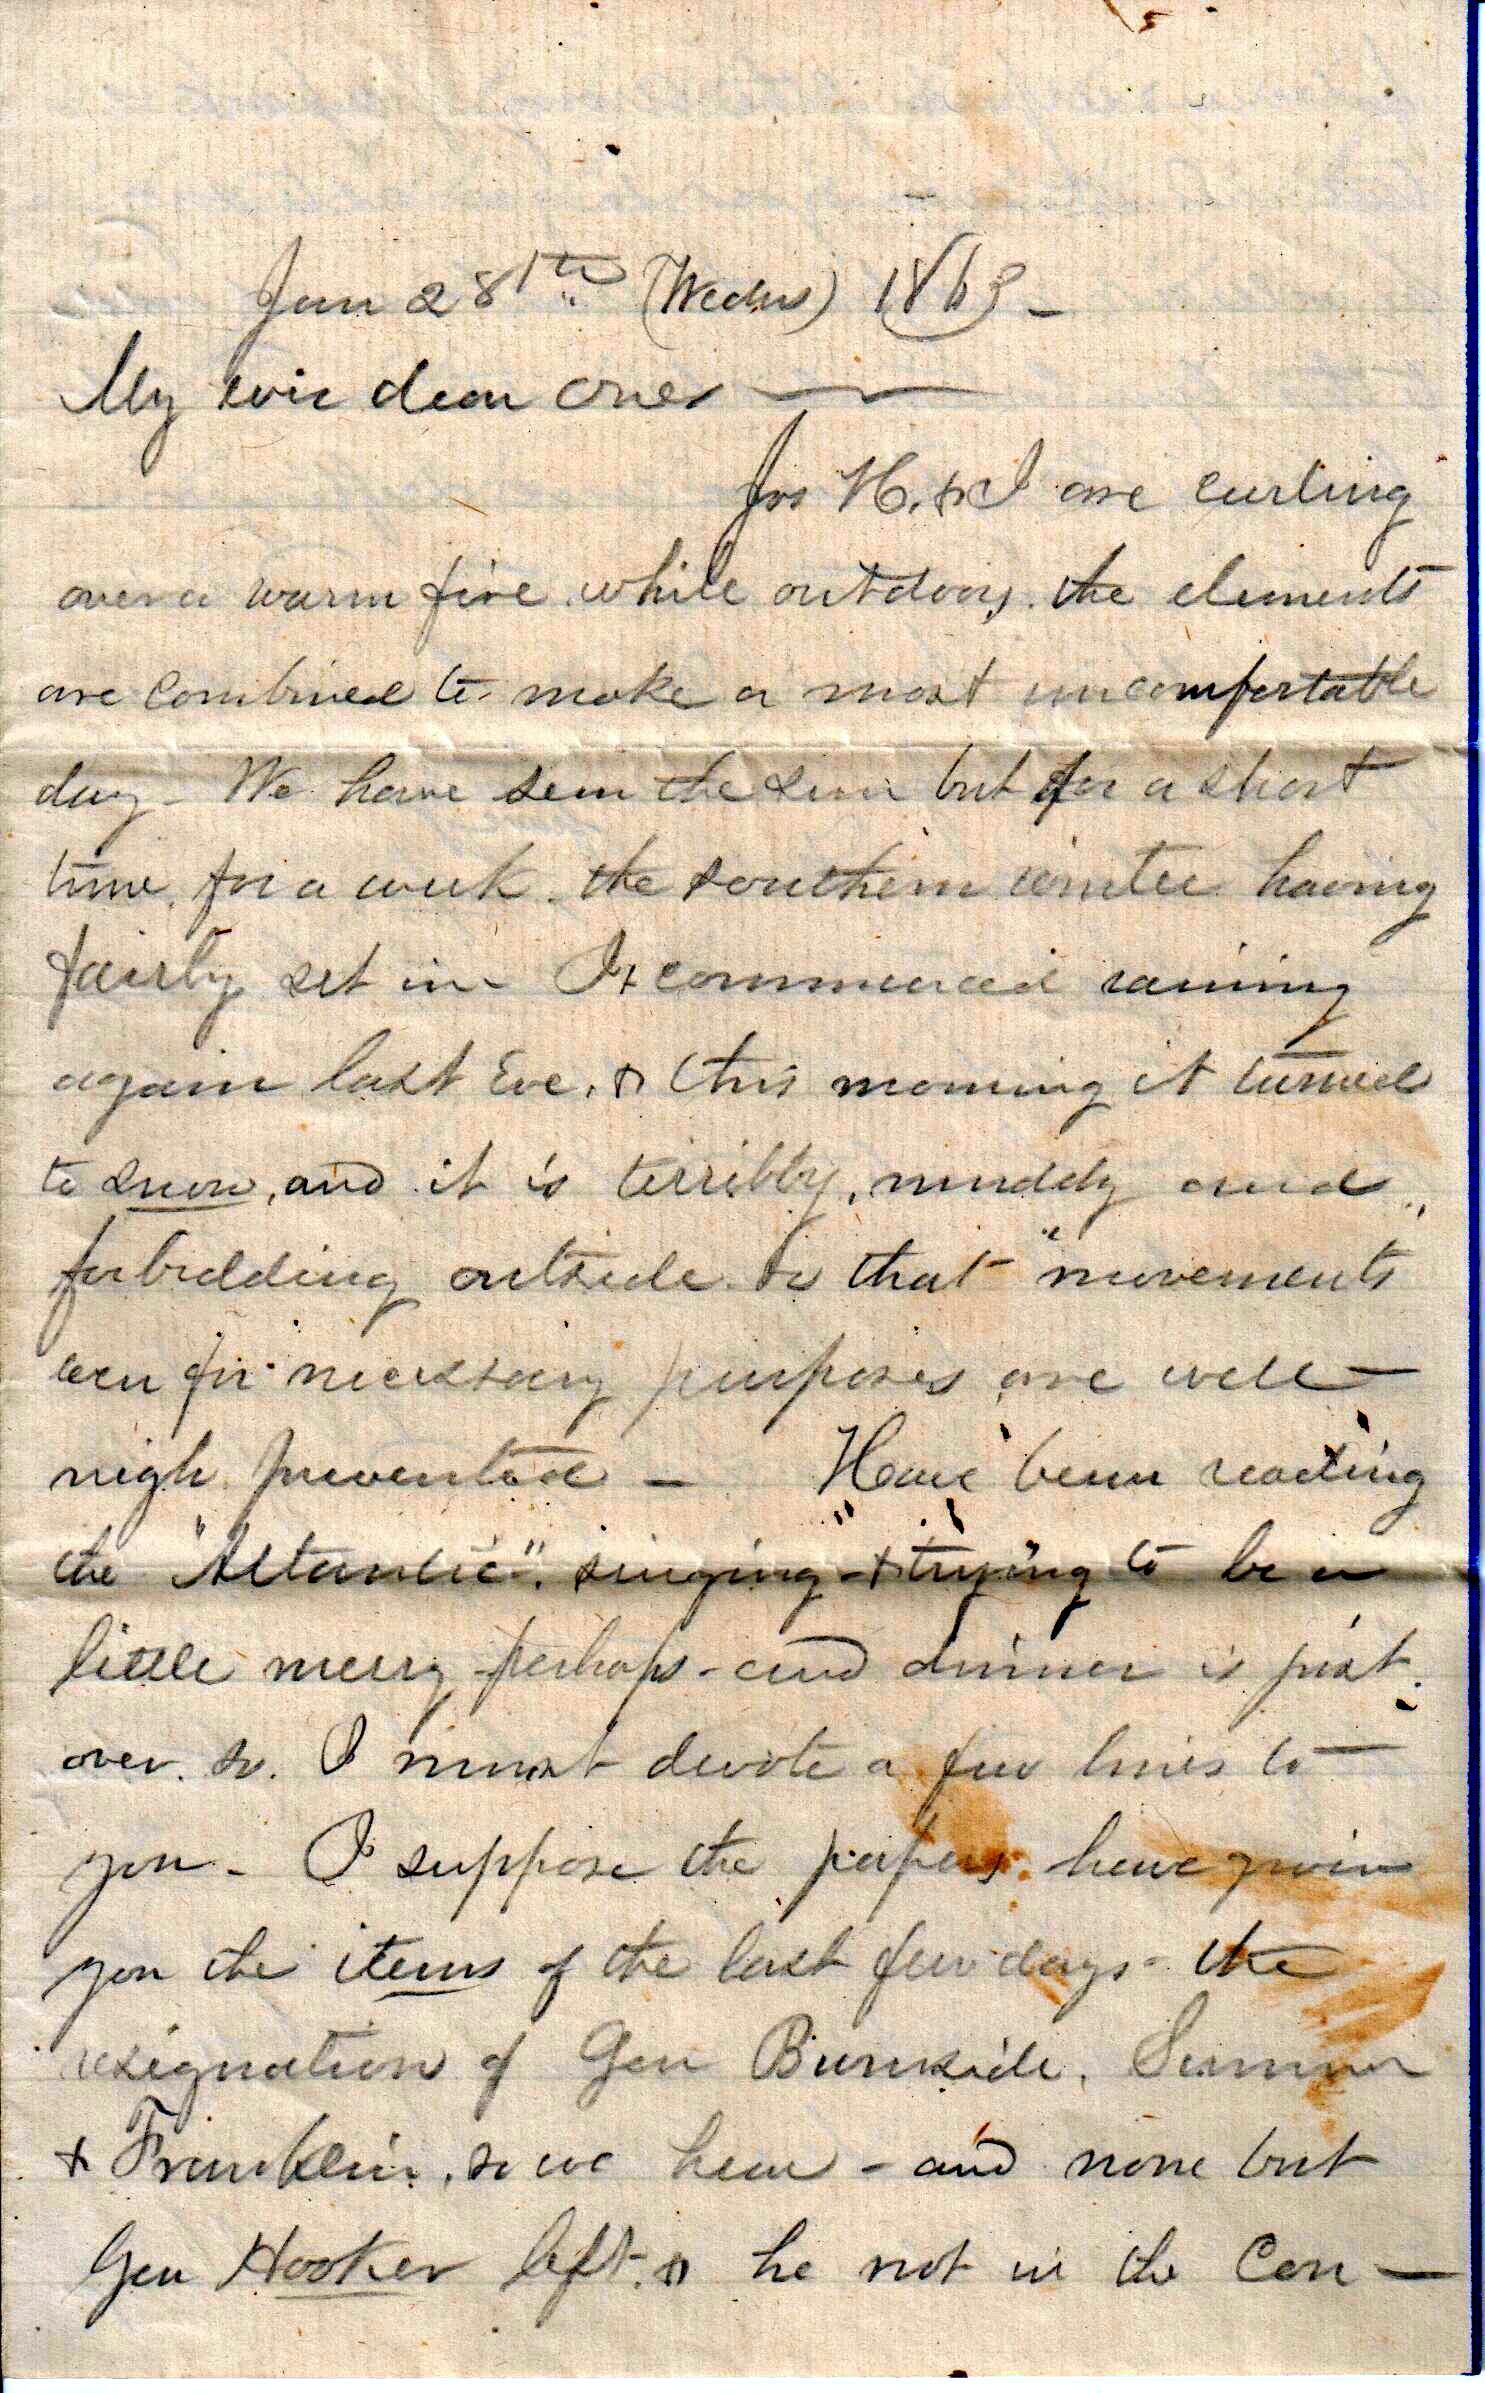 Jan 28th (Weds) 1863 -
My ever dear ones
Jos H. & I are curling
over a warm fire while outdoors the elements
are combined to make a most uncomfortable
day - We have seen the sun but for a short
time for a week the southern winter having
fairly set in - It commenced raining
again last Eve, & this morning it turned
to snow, and it is terribly muddy and
forbidding outside so that "movements"
even for necessary purposes are well-
nigh prevented - Have been reading
the "Atlantic", singing - & "trying" to be a
little merry perhaps - and dinner is just
over so I must devote a few lines to
you - I suppose the papers have given
you the items of the last few days - the
resignation of Gen Burnside, Sumner
& Franklin, so we hear - and none but
Gen Hooker left & he not in the Con-